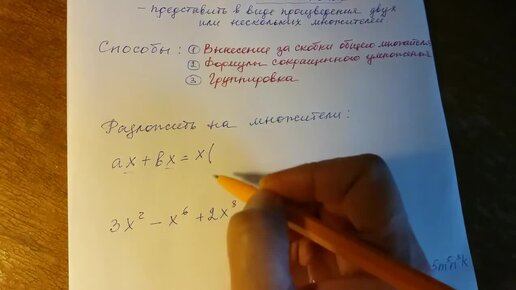 - представить в виде произведения двух
или нескольких множителей
Способы: ① Вынесение за скобки общего множителя
② Формулы сокращенного умножения
③ Группировка
Разложить на множители:
ax + bx = x(
3x² - x⁶ + 2x⁸